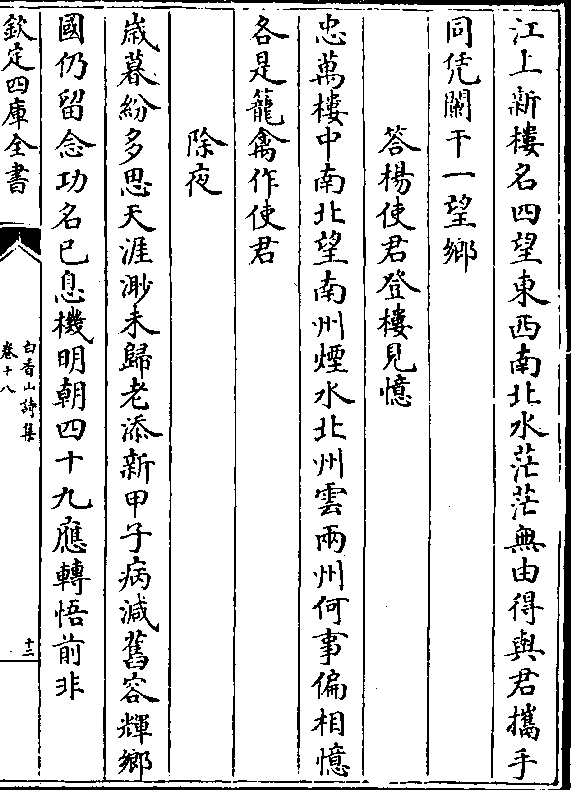 江上新樓名四望東西南北水茫茫無由得與君攜手
同凭闌干一望鄉
答楊使君登樓見憶
忠萬樓中南北望南州煙水北州雲兩州何事偏相憶
各是籠禽作使君
除夜
歳暮紛多思天涯渺未歸老添新甲子病減舊容輝鄉
國仍留念功名已息機明朝四十九應轉悟前非
欽定四庫全書
白香山詩集
卷十八
十二